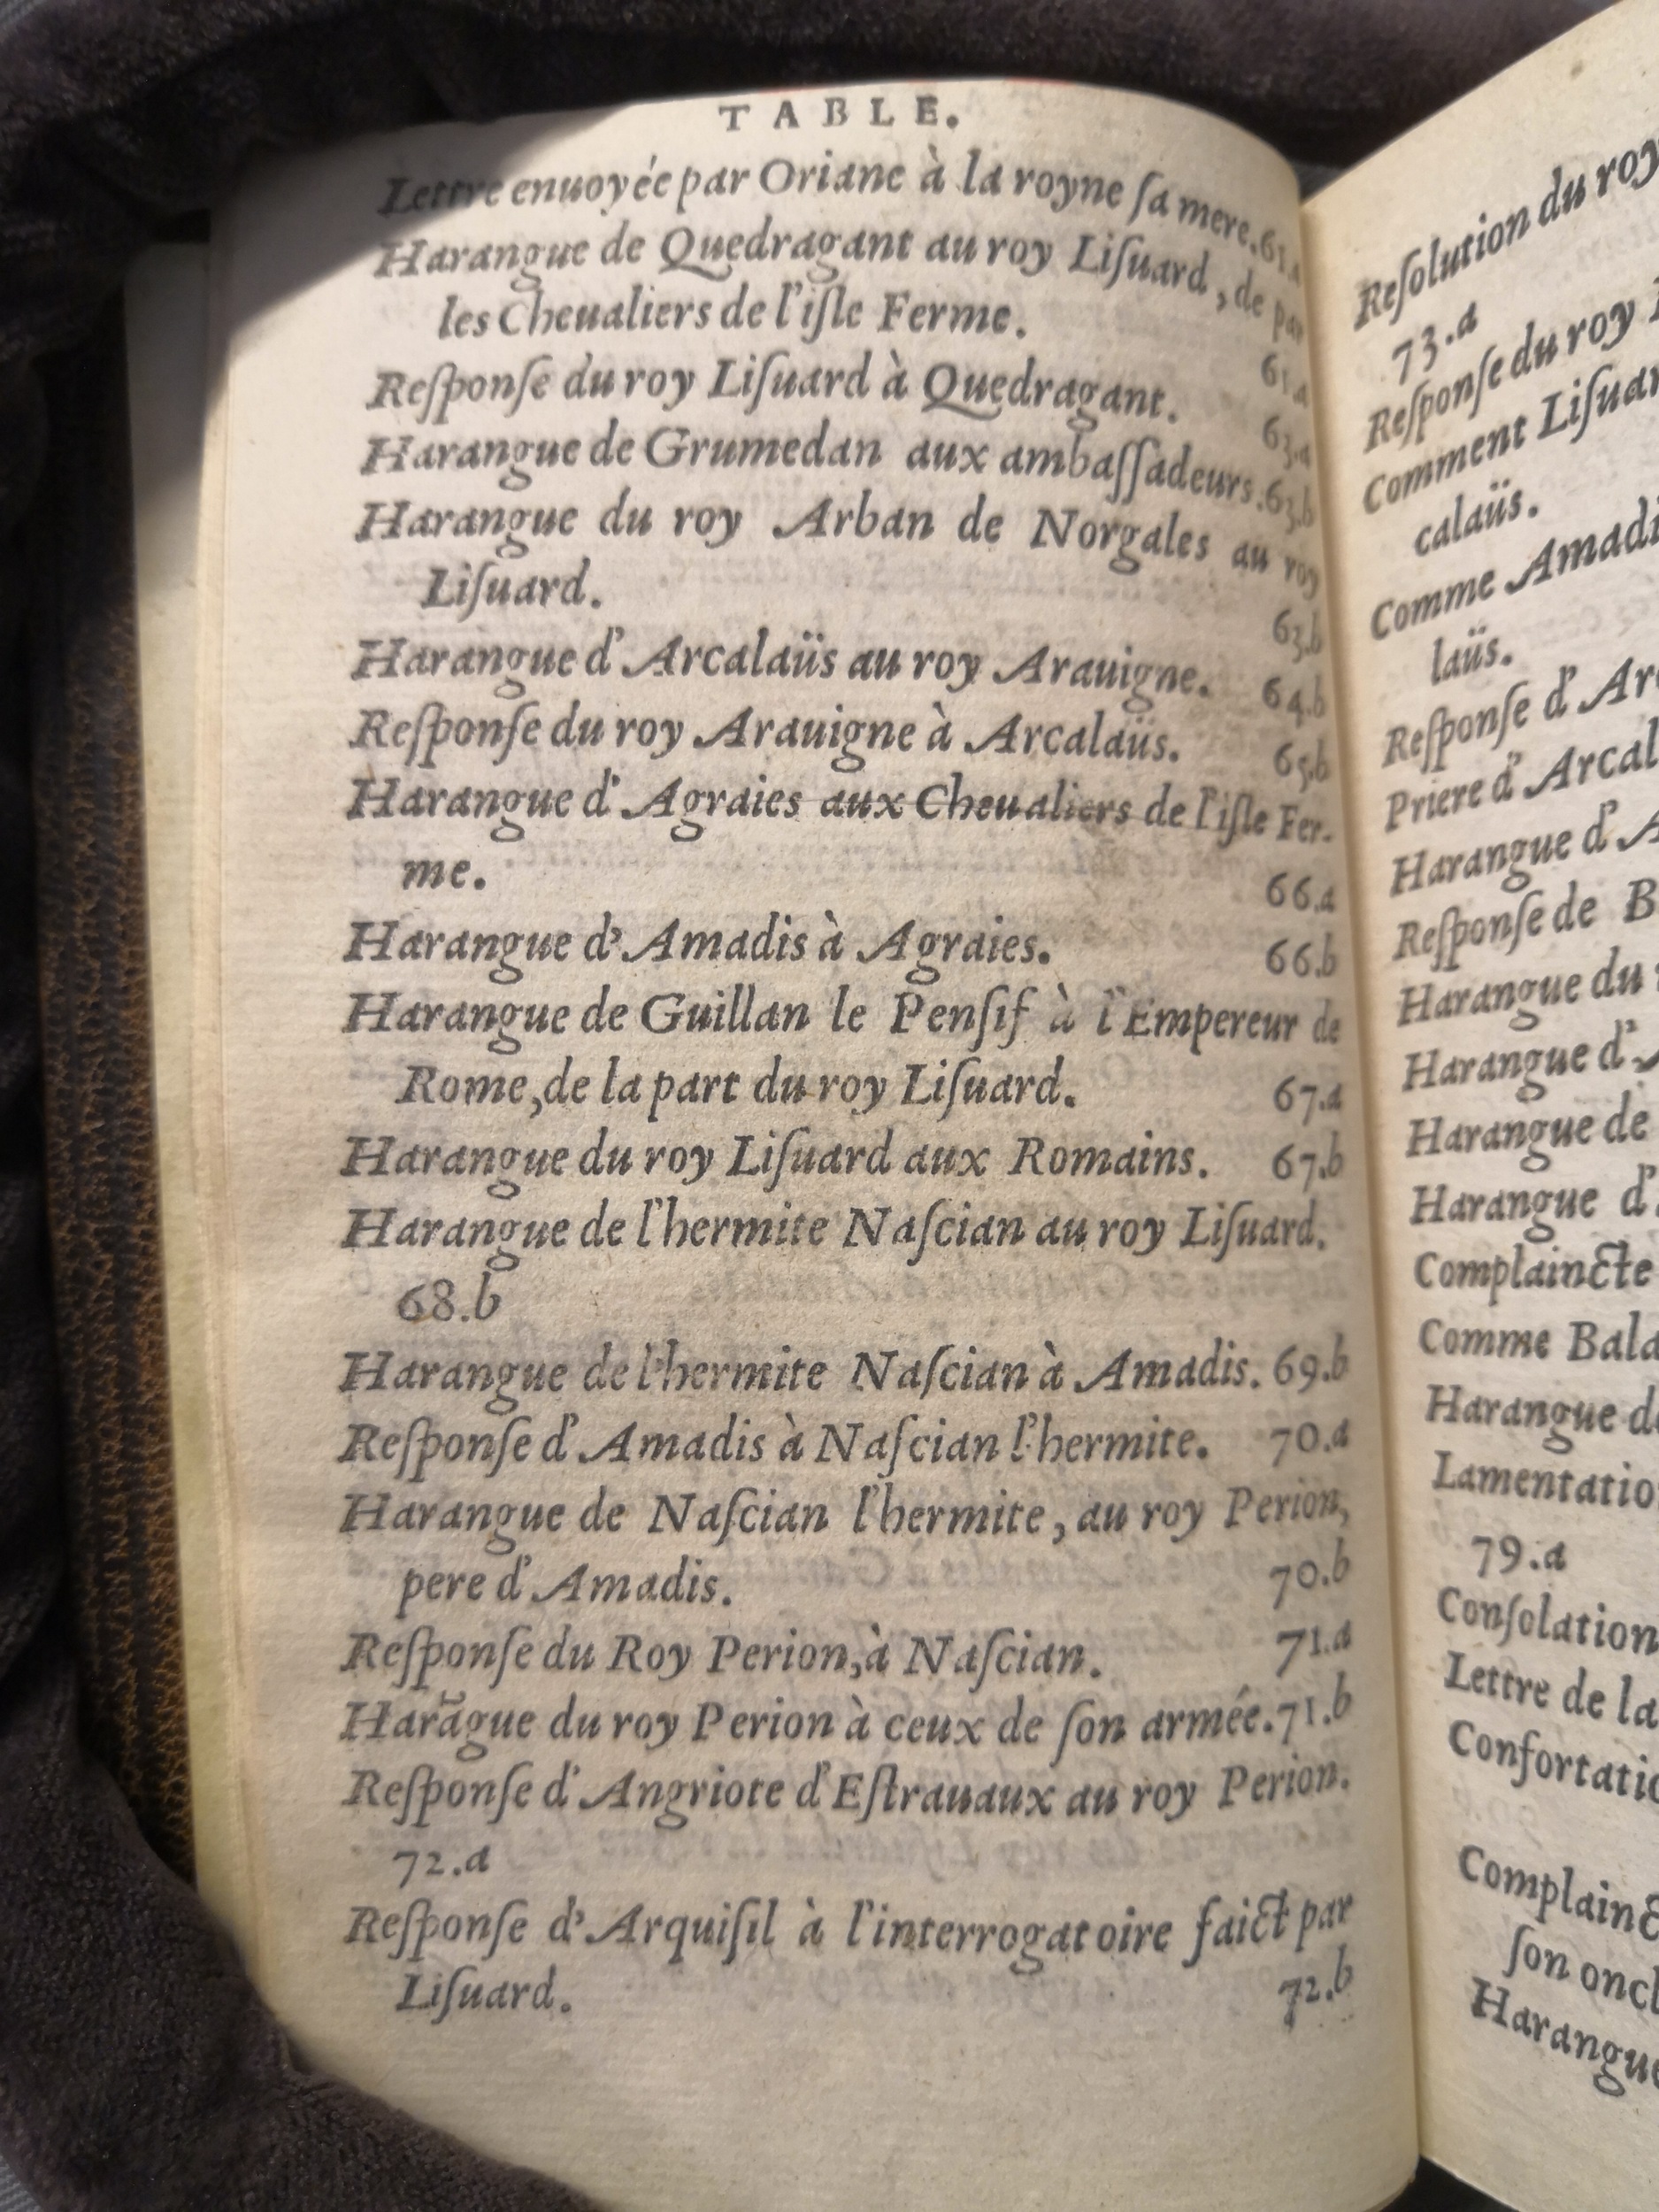 TABLE.
Lettre enuoyée par Oriane à la royne ſa mere. 61.a
Harangue de Quedragant au roy Liſuard, de par
les Cheualiers de l'iſle Ferme. 61.a
Reſponſe du roy Liſuard à Quedragant. 63.a
Harangue de Grumedan aux ambaſſadeurs. 63.b
Harangue du roy Arban de Norgales au roy
Liſuard. 63.b
Harangue d'Arcalaüs au roy Arauigne. 64.b
Reſponſe du roy Arauigne à Arcalaüs. 65.b
Harangue d'Agraies aux Cheualiers de l'iſle Fer-
me. 66.a
Harangue d'Amadis à Agraies. 66.b
Harangue de Guillan le Penſif à l'Empereur de
Rome, de la part du roy Liſuard. 67.a
Harangue du roy Liſuard aux Romains. 67.b
Harangue de l'hermite Naſcian au roy Liſuard.
68.b
Harangue de l'hermite Naſcian à Amadis. 69.b
Reſponſe d'Amadis à Naſcian l'hermite. 70.a
Harangue de Naſcian l'hermite, au roy Perion,
pere d'Amadis. 70.b
Reſponſe du Roy Perion, à Naſcian. 71.a
Harãgue du roy Perion à ceux de ſon armée. 71.b
Reſponſe d'Angriote d'Eſtrauaux au roy Perion.
72.a
Reſponſe d'Arquiſil à l'interrogatoire faict par
Liſuard. 72.b
Reſolution du roy
73.a
Reſponſe du roy
Comment Liſuar
calaüs.
Comme Amadi
laüs.
Reſponſe d'Ar
Priere d'Arcal
Harangue d'A
Reſponſe de B
Harangue du
Harangue d'
Harangue de
Harangue d'
Complaincte
Comme Bala
Harangue de
Lamentatio
79.a
Conſolation
Lettre de la
Confortatio
Complainc
ſon oncl
Harangue